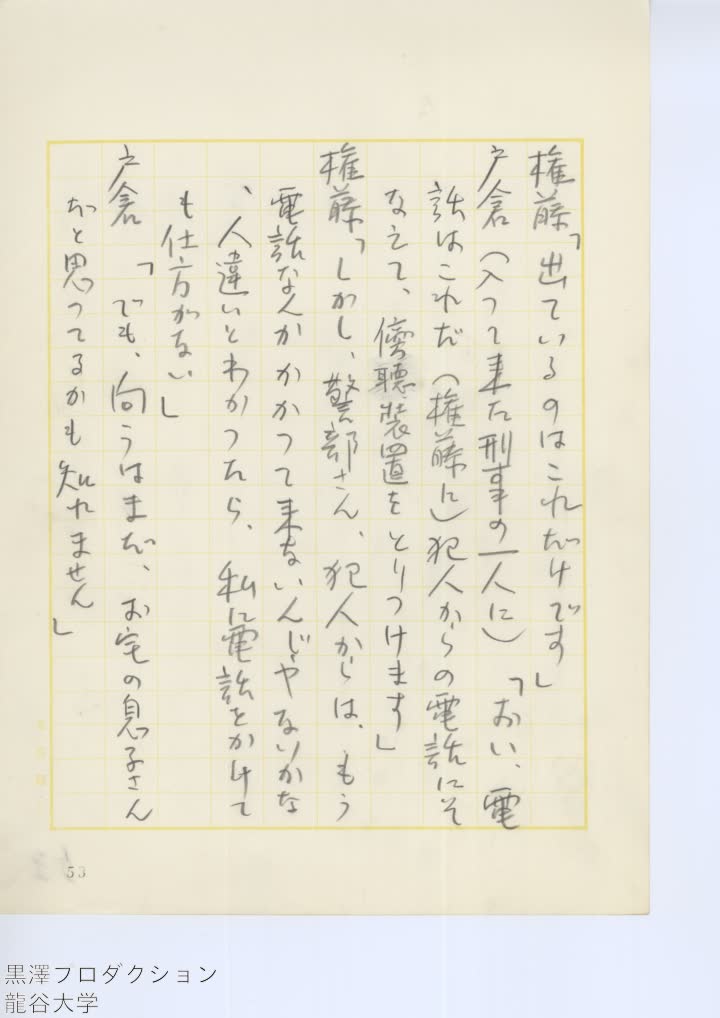 権藤「出ているのはこれだけです」
戸倉（入って来た刑事の一人に）「おい、電
話はこれだ（権藤に）犯人からの電話にそ
なえて、傍聴装置をとりつけます」
権藤「しかし、警部さん、犯人からは、もう
電話なんかかかって来ないんじゃないかな
、人違いとわかったら、私に電話をかけて
も仕方がない」
戸倉「でも、向うはまだ、お宅の息子さん
だと思ってるかも知れません」
53
黒澤プロダクション
龍谷大学